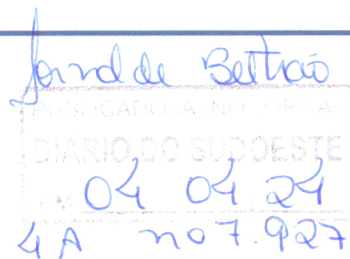 Jornal de Beltrão
PUBLICADO
DIARIO DO SUDOESTE
EM 04 04 24
4 A no 7.927